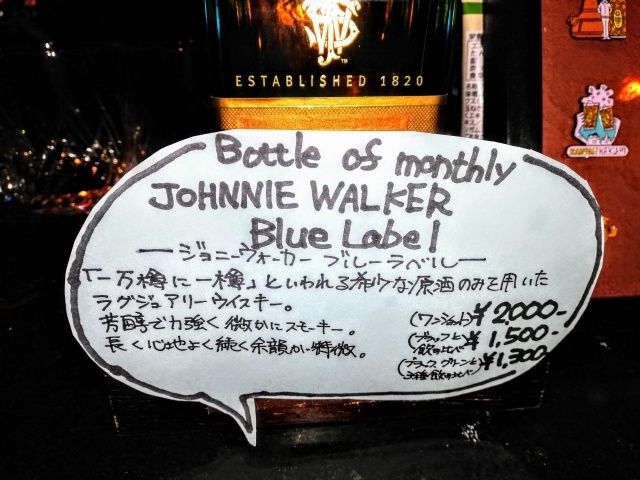 ESTABLISHED 1820
Bottle of monthly
JOHNNIE WALKER
Blue Label
ージョニーウォーカー ブルーラベルー
「一万樽に一樽」といわれる希少な原酒のみを用いた
ラグジュアリーウイスキー。
芳醇で力強く微かにスモーキー。
長く心地よく続く余韻が特徴。
(ワンショット) ¥2000-
(ブラックと飲み比べ) ¥1,500-
(ブラック、グリーンと3種飲み比べ) ¥1,300